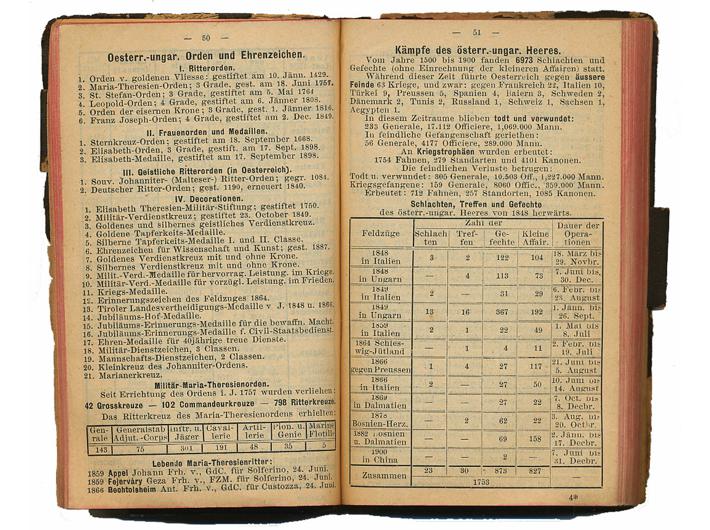 — 50 —
Oesterr.-ungar. Orden und Ehrenzeichen.
I. Ritterorden.
1. Orden v. goldenen Vliesse: gestiftet am 10. Jänn. 1429.
2. Maria-Theresien-Orden; 3 Grade, gest. am 18. Juni 1757.
3. St. Stefan-Orden; 3 Grade, gestiftet am 5. Mai 1764
4. Leopold-Orden; 4 Grade, gestiftet am 6. Jänner 1808.
5. Orden der eisernen Krone; 3 Grade, gest. 1. Jänner 1816.
6. Franz Joseph-Orden; 4 Grade, gestiftet am 2. Dec. 1849.
II. Frauenorden und Medaillen.
1. Sternkreuz-Orden; gestiftet am 18. September 1668.
2. Elisabeth-Orden, 3 Grade, gestift. am 17. Sept. 1898.
3. Elisabeth-Medaille, gestiftet am 17. September 1898.
III. Geistliche Ritterorden (in Oesterreich).
1. Souv. Johanniter- (Malteser-) Orden; gegr. 1084.
2. Deutscher Ritter-Orden; gest. 1190, erneuert 1840.
IV. Decorationen.
1. Elisabeth Theresien-Militär-Stiftung; gestiftet 1750.
2. Militär-Verdienstkreuz; gestiftet 23. October 1849.
3. Goldenes und silbernes geistliches Verdienstkreuz.
4. Goldene Tapferkeits-Medaille.
5. Silberne Tapferkeits-Medaille I. und II. Classe.
6. Ehrenzeichen für Wissenschaft und Kunst; gest. 1887.
7. Goldenes Verdienstkreuz mit und ohne Krone.
8. Silbernes Verdienstkreuz mit und ohne Krone.
9. Milit.-Verd.-Medaille für hervorrag. Leistung. im Kriege.
10. Militär-Verd.-Medaille für vorzügl. Leistung. im Frieden.
11. Kriegs-Medaille.
12. Erinnerungszeichen des Feldzuges 1864.
13. Tiroler Landesvertheidigungs-Medaille v. J. 1848 u. 1866.
14. Jubiläums-Hof-Medaille.
15. Jubiläums-Erinnerungs-Medaille für die bewaffn. Macht.
16. Jubiläums-Erinnerungs-Medaille f. Civil-Staatsbedienst.
17. Ehren-Medaille für 40jährige treue Dienste.
18. Militär-Dienstzeichen, 3 Classen.
19. Mannschafts-Dienstzeichen, 2 Classen.
20. Kleinkreuz des Johanniter-Ordens.
21. Marianerkreuz.
Militär-Maria-Theresienorden.
Seit Errichtung des Ordens i. J. 1757 wurden verliehen:
42 Grosskreuze — 102 Commandeurkreuze — 798 Ritterkreuze.
Das Ritterkreuz des Maria-Theresienordens erhielten:
Gen- Generalstab Inftr. u. Caval- Artil- Pion. u. Marine
rale Adjut.-Corps Jäger lerie lerie Genie Flotill-
143 75 301 191 48 35 5
Lebende Maria-Theresienritter:
1859 Appel Johann Frh. v., GdC. für Solferino, 24. Juni.
1859 Fejerváry Geza Frh. v., FZM. für Solferino, 24. Juni.
1866 Bechtolsheim Ant. Frh. v., GdC. für Custozza, 24. Juni.
— 51 —
Kämpfe des österr.-ungar. Heeres.
Vom Jahre 1500 bis 1900 fanden 6973 Schlachten und
Gefechte (ohne Einrechnung der kleineren Affairen) statt.
Während dieser Zeit führte Oesterreich gegen äussere
Feinde 63 Kriege, und zwar: gegen Frankreich 22, Italien 10,
Türkei 9, Preussen 5, Spanien 4, Baiern 3, Schweden 2,
Dänemark 2, Tunis 2, Russland 1, Schweiz 1, Sachsen 1,
Aegypten 1.
In diesem Zeitraume blieben todt und verwundet:
233 Generale, 17.112 Officiere, 1,069.000 Mann.
In feindliche Gefangenschaft geriethen:
56 Generale, 4177 Officiere, 289.000 Mann.
An Kriegstrophäen wurden erbeutet:
1754 Fahnen, 279 Standarten und 4101 Kanonen.
Die feindlichen Verluste betrugen:
Todt u. verwundet: 305 Generale, 10.503 Off., 1,227.000 Mann.
Kriegsgefangene: 159 Generale, 8060 Offic., 359.000 Mann.
Erbeutet: 712 Fahnen, 257 Standarten, 1085 Kanonen.
Schlachten, Treffen und Gefechte
des österr.-ungar. Heeres von 1848 herwärts.
Feldzüge Zahl der Dauer der Opera- tionen
Schlach ten Tref- fen Ge- fechte Kleine Affair.
1848 in Italien 3 2 122 104 18. März bis 29. Novbr.
1848 in Ungarn — 4 113 73 7. Juni bis, 30. Dec.
1849 in Italien 2 — 31 29 6. Febr. bis 23. August
1849 in Ungarn 13 16 367 192 1. Jänn. bis 26. Sept.
1859 in Italien 2 1 22 49 1. Mai bis 8. Juli
1864 Schles- wig-Jütland — 1 4 11 2. Febr. bis 19. Juli
1866 gegen Preussen 1 4 27 117 21. Juni bis 5. August
1866 in Italien 2 — 27 50 10. Juni bis 14. August
1869 in Dalmatien — — 27 22 7. Oct. bis 8. Decbr.
1878 Bosnien-Herz. — 2 62 22 3. Aug. bis 20. Octbr.
1882 Bosnien u. Dalmatien — — 69 158 2. Jänn. bis 17. Decbr.
1900 in China — — 2 — 7. Juni bis 31. Decbr.
Zusammen 23 30 873 827 —
1753
4*